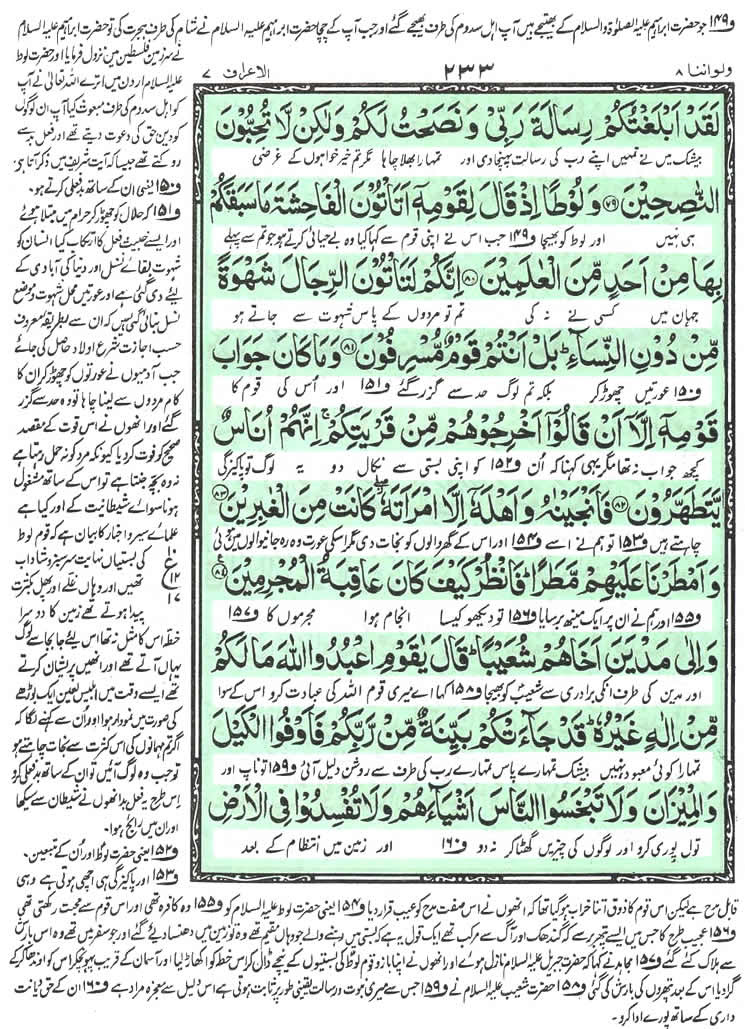 و۱۴۹ جو حضرت ابراہیم علیہ الصلوٰۃ والسلام کے بھتیجے ہیں آپ اہل سدوم کی طرف بھیجے گئے اور جب آپ کے چچا حضرت ابراہیم علیہ السلام نے شام کی طرف ہجرت کی تو حضرت ابراہیم علیہ السلام
ولواننا ۸
۲۳۳
الاعراف ۷
لَقَدْ اَبْلَغْتُكُمْ رِسَالَةَ رَبِّیْ وَ نَصَحْتُ لَكُمْ وَ لٰكِنْ لَّا تُحِبُّوْنَ
بیشک میں نے تمہیں اپنے رب کی رسالت پہنچا دی اور تمہارا بھلا چاہا مگر تم خیر خواہوں کے غرضی
النّٰصِحِیْنَ ﴿۷۹﴾ وَ لُوْطًا اِذْ قَالَ لِقَوْمِهٖۤ اَتَاْتُوْنَ الْفَاحِشَةَ مَا سَبَقَكُمْ
ہی نہیں اور لوط کو بھیجا و۱۴۹ جب اس نے اپنی قوم سے کہا کیا وہ بے حیائی کرتے ہو جو تم سے پہلے
بِهَا مِنْ اَحَدٍ مِّنَ الْعٰلَمِیْنَ ﴿۸۰﴾ اِنَّكُمْ لَتَاْتُوْنَ الرِّجَالَ شَهْوَةً
جہان میں کسی نے نہ کی تم تو مردوں کے پاس شہوت سے جاتے ہو
مِّنْ دُوْنِ النِّسَآءِؕ بَلْ اَنْتُمْ قَوْمٌ مُّسْرِفُوْنَ ﴿۸۱﴾ وَ مَا كَانَ جَوَابَ
و۱۵۰ عورتیں چھوڑ کر بلکہ تم لوگ حد سے گزر گئے و۱۵۱ اور اُس کی قوم کا
قَوْمِهٖۤ اِلَّاۤ اَنْ قَالُوْۤا اَخْرِجُوْهُمْ مِّنْ قَرْیَتِكُمْۚ اِنَّهُمْ اُنَاسٌ
کچھ جواب نہ تھا مگر یہی کہنا کہ اُن و۱۵۲ کو اپنی بستی سے نکال دو یہ لوگ تو پاکیزگی
یَّتَطَهَّرُوْنَ ﴿۸۲﴾ فَاَنْجَیْنٰهُ وَ اَهْلَهٗۤ اِلَّا امْرَاَتَهٗ كَانَتْ مِنَ الْغٰبِرِیْنَ ﴿۸۳﴾
چاہتے ہیں و۱۵۳ تو ہم نے اسے و۱۵۴ اور اس کے گھر والوں کو نجات دی مگر اسکی عورت وہ رہ جانیوالوں میں ہوئی
وَ اَمْطَرْنَا عَلَیْهِمْ مَّطَرًاؕ فَانْظُرْ كَیْفَ كَانَ عَاقِبَةُ الْمُجْرِمِیْنَ ﴿۸۴﴾
و۱۵۵ اور ہم نے ان پر ایک مینھ برسایا و۱۵۶ تو دیکھو کیسا انجام ہوا مجرموں کا و۱۵۷
وَ اِلٰى مَدْیَنَ اَخَاهُمْ شُعَیْبًاؕ قَالَ یٰقَوْمِ اعْبُدُوا اللّٰهَ مَا لَكُمْ
اور مدین کی طرف انکی برادری سے شعیب کو بھیجا و۱۵۸ کہا اے میری قوم اللہ کی عبادت کرو اس کے سوا
مِّنْ اِلٰهٍ غَیْرُهٗؕ قَدْ جَآءَتْكُمْ بَیِّنَةٌ مِّنْ رَّبِّكُمْ فَاَوْفُوا الْكَیْلَ
تمہارا کوئی معبود نہیں بیشک تمہارے پاس تمہارے رب کی طرف سے روشن دلیل آئی و۱۵۹ تو ناپ اور
وَ الْمِیْزَانَ وَ لَا تَبْخَسُوا النَّاسَ اَشْیَآءَهُمْ وَ لَا تُفْسِدُوْا فِی الْاَرْضِ
تول پوری کرو اور لوگوں کی چیزیں گھٹا کر نہ دو و۱۶۰ اور زمین میں انتظام کے بعد
نے سرزمین فلسطین میں نزول فرمایا اور حضرت لوط
علیہ السلام اردن میں اترے اللہ تعالیٰ نے آپ
کو اہل سدوم کی طرف مبعوث کیا آپ ان لوگوں
کو دین حق کی دعوت دیتے تھے اور فعل بد سے
روکتے تھے جیسا کہ آیت شریف میں ذکر آتا ہی
و۱۵۰ یعنی ان کے ساتھ بدفعلی کرتے ہو۔
و۱۵۱ کہ حلال کو چھوڑ کر حرام میں مبتلا ہوئے
اور ایسے خبیث فعل کا ارتکاب کیا انسان کو
شہوت بقائے نسل اور دنیا کی آبادی کے
لیئے دی گئی ہے اور عورتیں محل شہوت و موضع
نسل بنائی گئی ہیں کہ ان سے بطریقۂ معروف
حسب اجازت شرع اولاد حاصل کی جائے
جب آدمیوں نے عورتوں کو چھوڑ کر ان کا
کام مردوں سے لینا چاہا تو وہ حد سے گزر
گئے اور انھوں نے اس قوت کے مقصد
صحیح کو فوت کر دیا کیونکہ مرد کو نہ حمل رہتا ہے
نہ وہ بچہ جنتا ہے تو اس کے ساتھ مشغول
ہونا سوائے شیطانیت کے اور کیا ہے
علمائے سیر و اخبار کا بیان ہے کہ قوم لوط
کی بستیاں نہایت سرسبز و شاداب
تھیں اور وہاں غلے اور پھل بکثرت
پیدا ہوتے تھے زمین کا دوسرا
خطہ اس کا مثل نہ تھا اس لیئے جا بجا سے لوگ
یہاں آتے تھے اور انھیں پریشان کرتے
تھے ایسے وقت میں ابلیس لعین ایک بوڑھے
کی صورت میں نمودار ہوا اور ان سے کہنے لگا کہ
اگر تم مہمانوں کی اس کثرت سے نجات چاہتے ہو
تو جب وہ لوگ آئیں تو ان کے ساتھ بدفعلی کرو
اس طرح یہ فعل بد انھوں نے شیطان سے سیکھا
اور ان میں رائج ہوا۔
و۱۵۲ یعنی حضرت لوط اور اُن کے متبعین۔
و۱۵۳ اور پاکیزگی ہی اچھی ہوتی ہے وہی
ع
۱۲
۱۷
قابل مدح ہے لیکن اس قوم کا ذوق اتنا خراب ہو گیا تھا کہ انھوں نے اس صفت مدح کو عیب قرار دیا و۱۵۴ یعنی حضرت لوط علیہ السلام کو و۱۵۵ وہ کافرہ تھی اور اس قوم سے محبت رکھتی تھی
و۱۵۶ عجیب طرح کا جس میں ایسے پتھر برسے کہ گندھک اور آگ سے مرکب تھے ایک قول یہ ہے کہ بستی میں رہنے والے جو وہاں مقیم تھے وہ تو زمین میں دھنسا دیئے گئے اور جو سفر میں تھے وہ اس بارش
سے ہلاک کئے گئے و۱۵۷ مجاہد نے کہا کہ حضرت جبریل علیہ السلام نازل ہوئے اور انھوں نے اپنا بازو قوم لوط کی بستیوں کے نیچے ڈال کر اس خطہ کو اکھاڑ لیا اور آسمان کے قریب پہونچکر اس کو اوندھا کرکے
گرا دیا اس کے بعد پتھروں کی بارش کی گئی و۱۵۸ حضرت شعیب علیہ السلام نے و۱۵۹ جس سے میری نبوت و رسالت یقینی طور پر ثابت ہوتی ہے اس دلیل سے معجزہ مراد ہے و۱۶۰ ان کے حق دیانت
داری کے ساتھ پورے ادا کرو۔